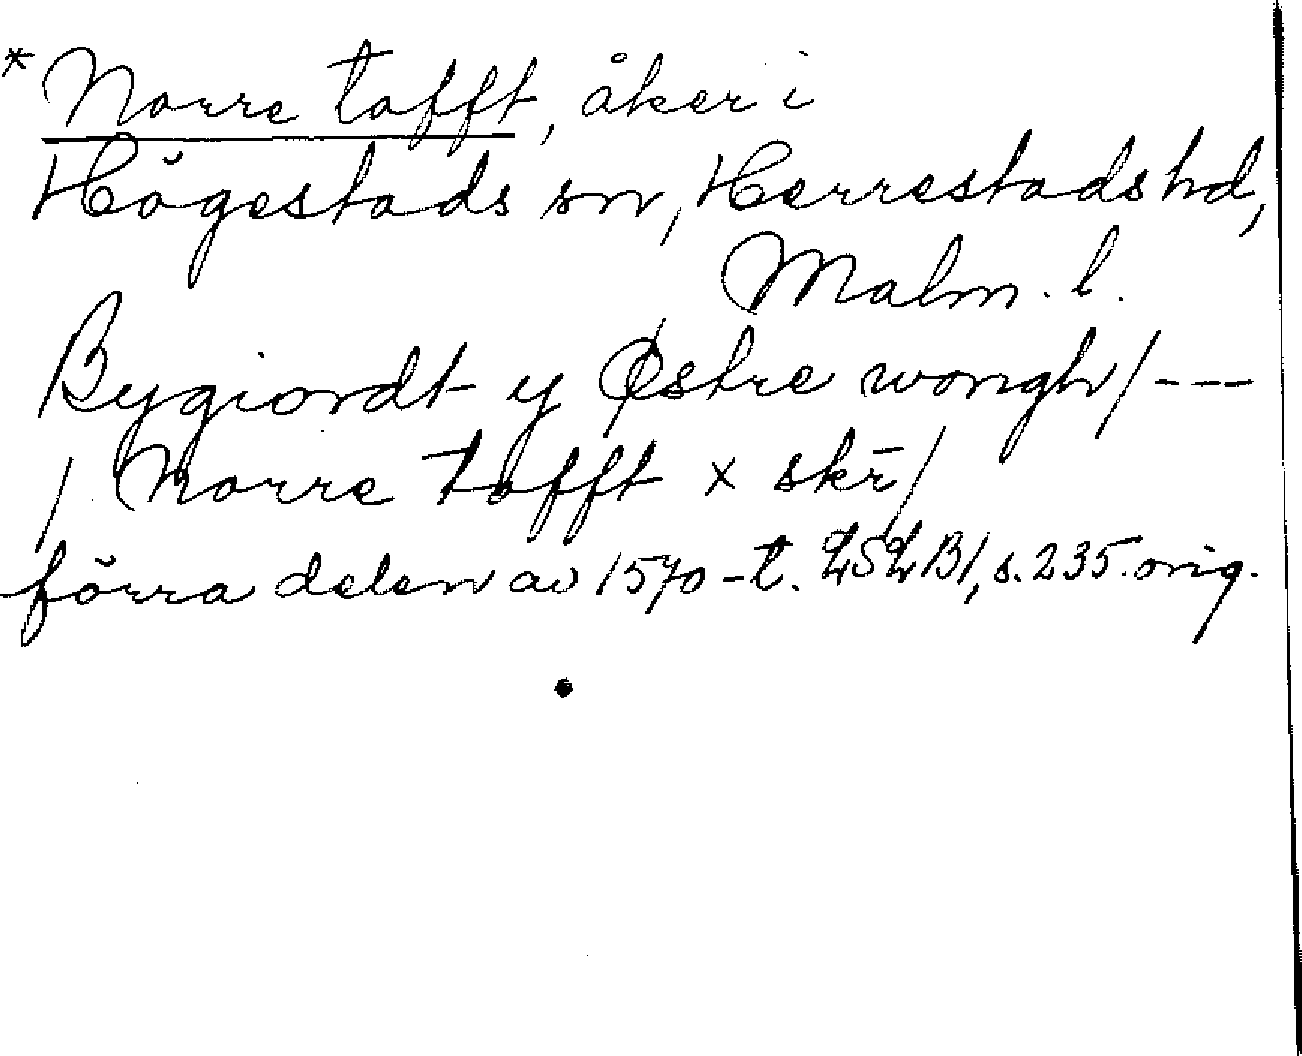 * Norre tofft, åker i
Högestads sn, Herrestads hd,
Malm. l.
Bygiordt y Østre wongh/---
/ Norre tofft x skr̄/
förra delen av 1570-t. LSLB1, s. 235. orig.